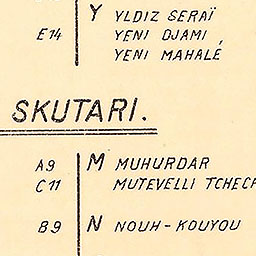 Y YLDIZ SERAÏ
E14 YENI DJAMI
YENI MAHALÉ
SKUTARI.
A9 M MUHURDAR
C11 MUTEVELLI
B9 N NOUH-KOUYOU